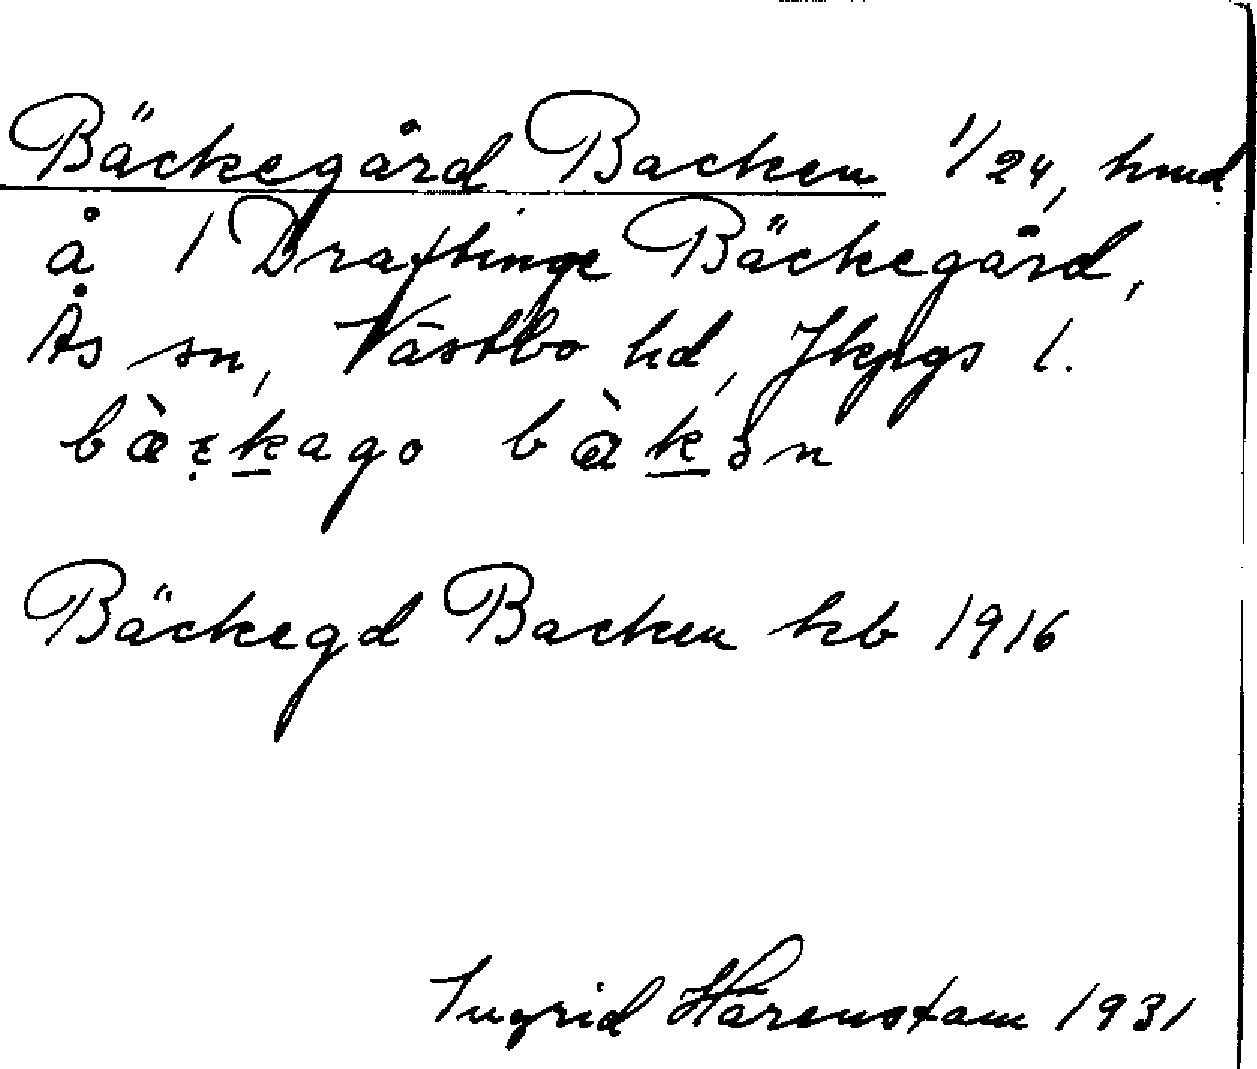 Bäckegård Backen 1/24, hmd
å 1 Draftinge Bäckegård,
Ås sn, Västbo hd, Jkpgs l.
Bäckegd Backen kb 1916
Ingrid Härenstam 1931